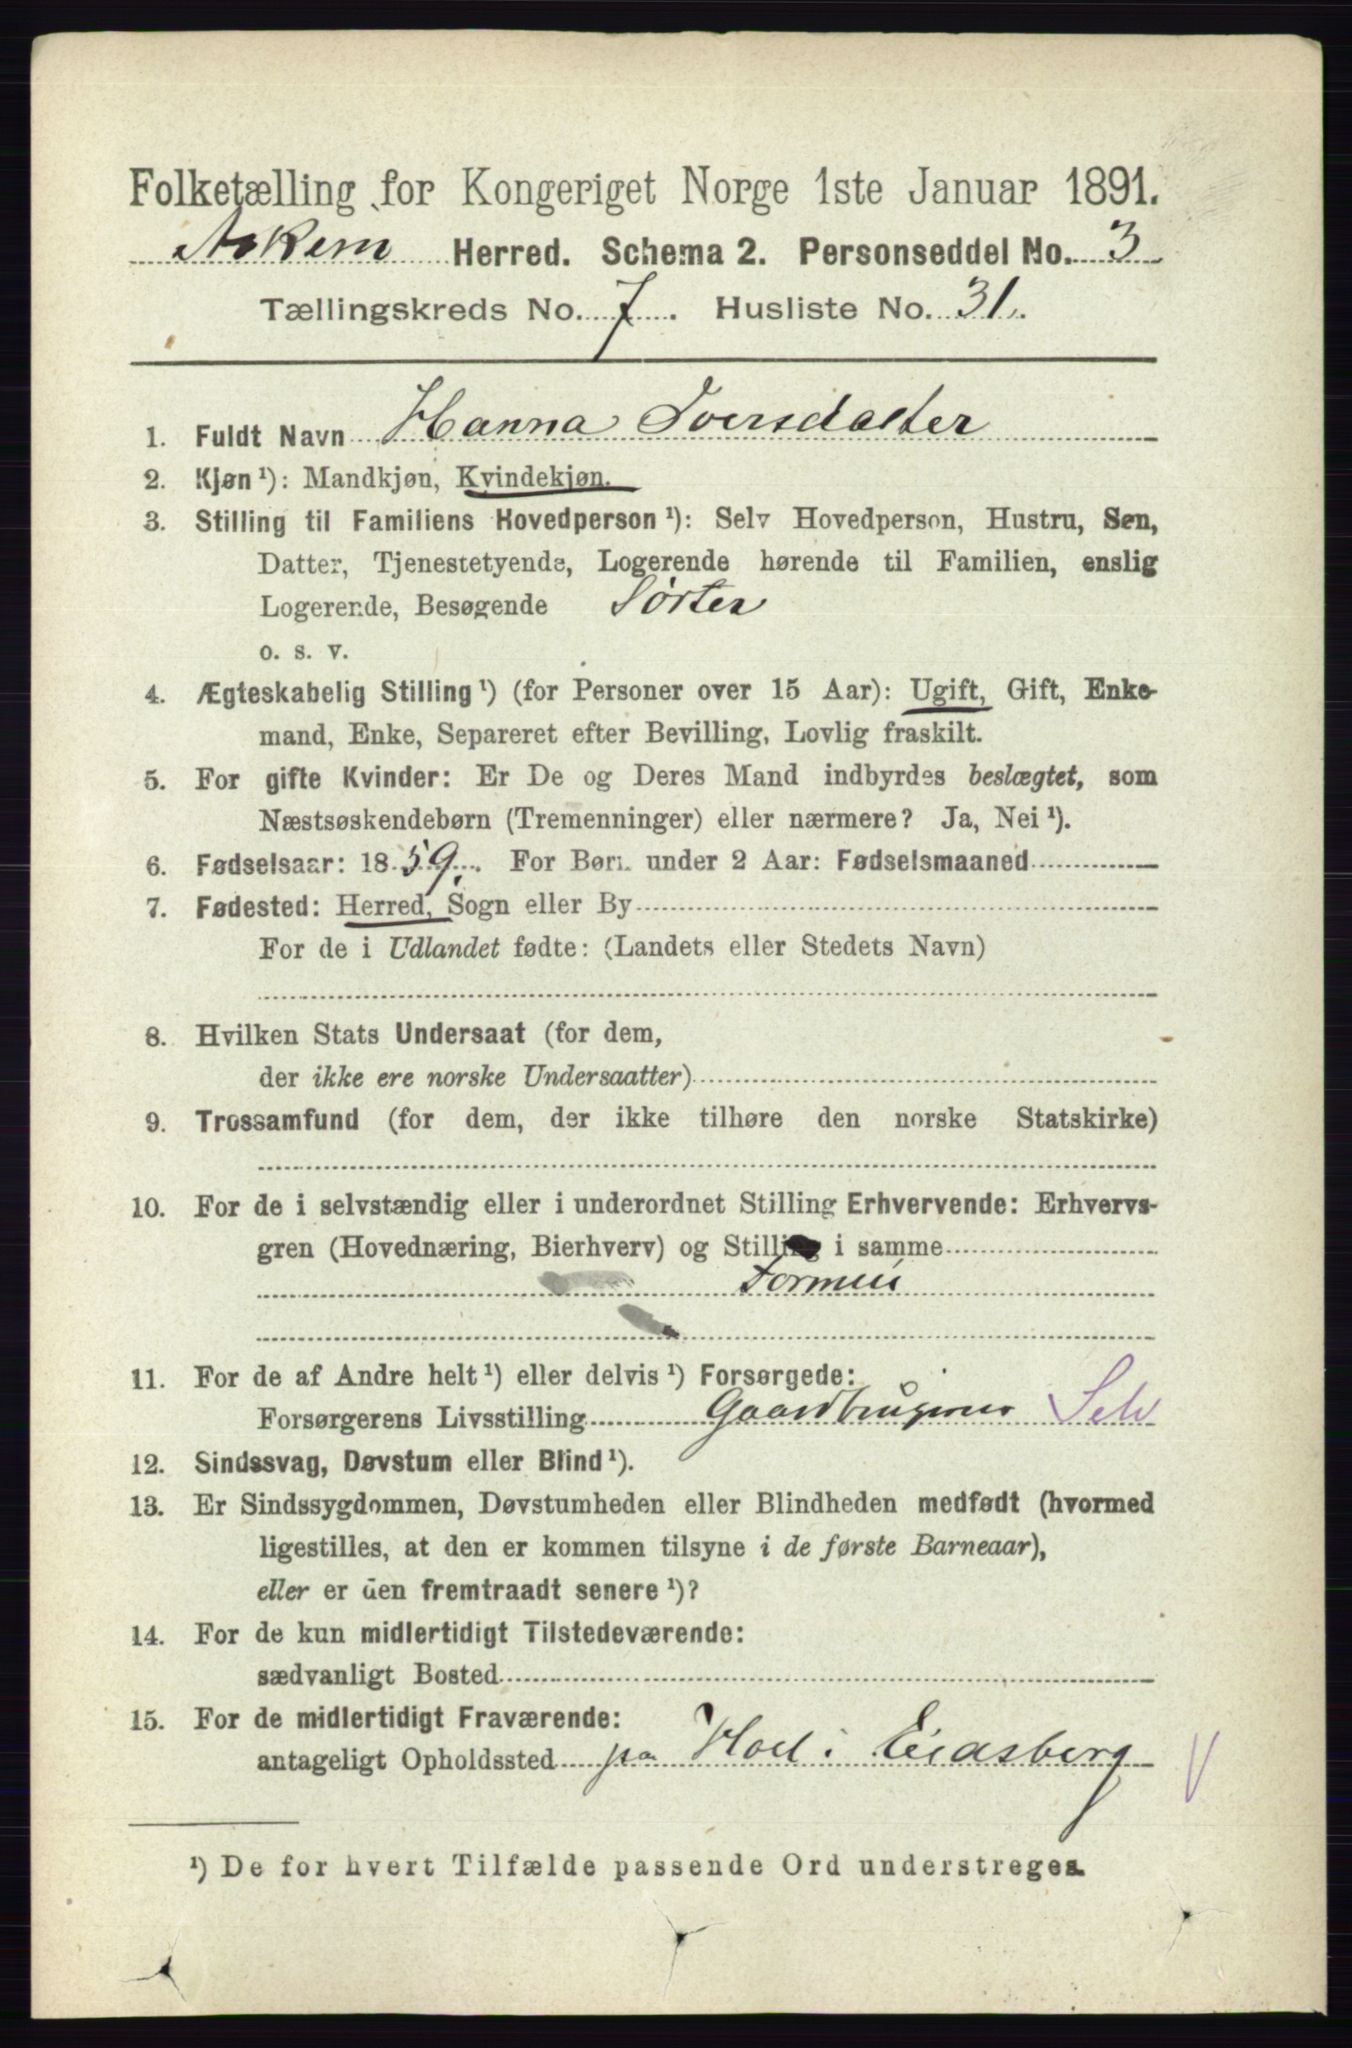 Folketælling for Kongeriget Norge 1ste Januar 1891.
Askem Herred. Schema 2. Personseddel No. 3
Tællingskreds No. 7. Husliste No. 31.
1. Fuldt Navn Hanna Iversdatter
2. Kjøn ¹): Mandkjøn, Kvindekjøn.
3. Stilling til Familiens Hovedperson ¹): Selv Hovedperson, Hustru, Søn,
Datter, Tjenestetyende, Logerende hørende til Familien, enslig
Logerende, Besøgende Sørter
o. s. v.
4. Ægteskabelig Stilling ¹) (for Personer over 15 Aar): Ugift, Gift, Enke-
mand, Enke, Separeret efter Bevilling, Lovlig fraskilt.
5. For gifte Kvinder: Er De og Deres Mand indbyrdes beslægtet, som
Næstsøskendebørn (Tremenninger) eller nærmere? Ja, Nei ¹).
6. Fødselsaar: 1859. For Børn under 2 Aar: Fødselsmaaned
7. Fødested: Herred, Sogn eller By
For de i Udlandet fødte: (Landets eller Stedets Navn)
8. Hvilken Stats Undersaat (for dem,
der ikke ere norske Undersaatter)
9. Trossamfund (for dem, der ikke tilhøre den norske Statskirke)
10. For de i selvstændig eller i underordnet Stilling Erhvervende: Erhvervs-
gren (Hovednæring, Bierhverv) og Stilling i samme
Formue
11. For de af Andre helt ¹) eller delvis ¹) Forsørgede:
Forsørgerens Livsstilling Gaardbrugerens Selv
12. Sindssvag, Døvstum eller Blind ¹).
13. Er Sindssygdommen, Døvstumheden eller Blindheden medfødt (hvormed
ligestilles, at den er kommen tilsyne i de første Barneaar),
eller er den fremtraadt senere ¹)?
14. For de kun midlertidigt Tilstedeværende:
sædvanligt Bosted
15. For de midlertidigt Fraværende:
antageligt Opholdssted paa Hoel i Eidsberg
V
¹) De for hvert Tilfælde passende Ord understreges.